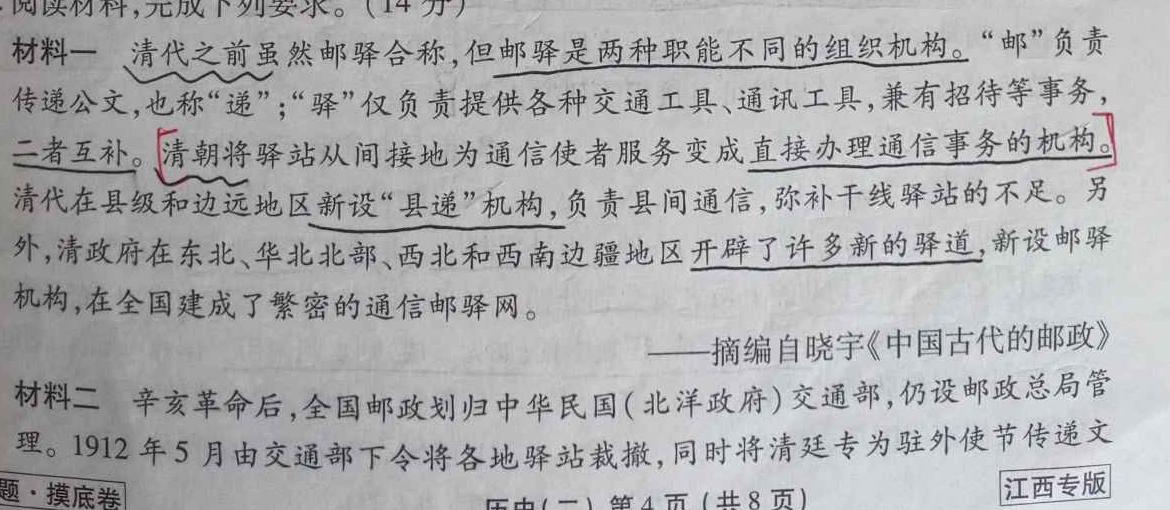 阅读材料,完成下列要求。(14分)
材料一 清代之前虽然邮驿合称,但邮驿是两种职能不同的组织机构。“邮”负责
传递公文,也称“递”;“驿”仅负责提供各种交通工具、通讯工具,兼有招待等事务,
二者互补。清朝将驿站从间接地为通信使者服务变成直接办理通信事务的机构。
清代在县级和边远地区新设“县递”机构,负责县间通信,弥补干线驿站的不足。另
外,清政府在东北、华北北部、西北和西南边疆地区开辟了许多新的驿道,新设邮驿
机构,在全国建成了繁密的通信邮驿网。
——摘编自晓宇《中国古代的邮政》
材料二 辛亥革命后,全国邮政划归中华民国(北洋政府)交通部,仍设邮政总局管
理。1912年5月由交通部下令将各地驿站裁撤,同时将清廷专为驻外使节传递文
题·摸底卷 历史(二) 第4页(共8页) 江西专版